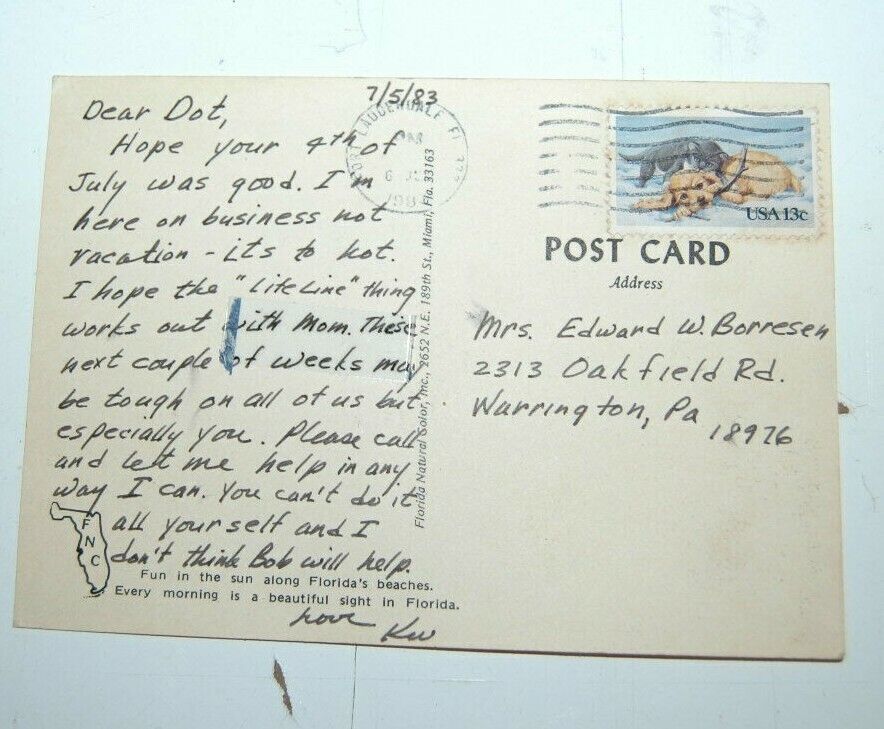 7/5/83
Dear Dot,
Hope your 4th of
July was good. I'm
here on business not
vacation - its to hot.
I hope the "LifeLine" thing
works out with Mom. These
next couple of weeks may
be tough on all of us but
especially you. Please call
and let me help in any
way I can. You can't do it
all your self and I
don't think Bob will help.
Love
FNC
Fun in the sun along Florida's beaches.
Every morning is a beautiful sight in Florida.
Florida Natural Color, Inc., 2652 N.E. 189th St., Miami, Fla. 33163
FORT LAUDERDALE FL
PM
6
198
USA 13c
POST CARD
Address
Mrs. Edward W. Borresen
2313 Oakfield Rd.
Warrington, Pa
18976